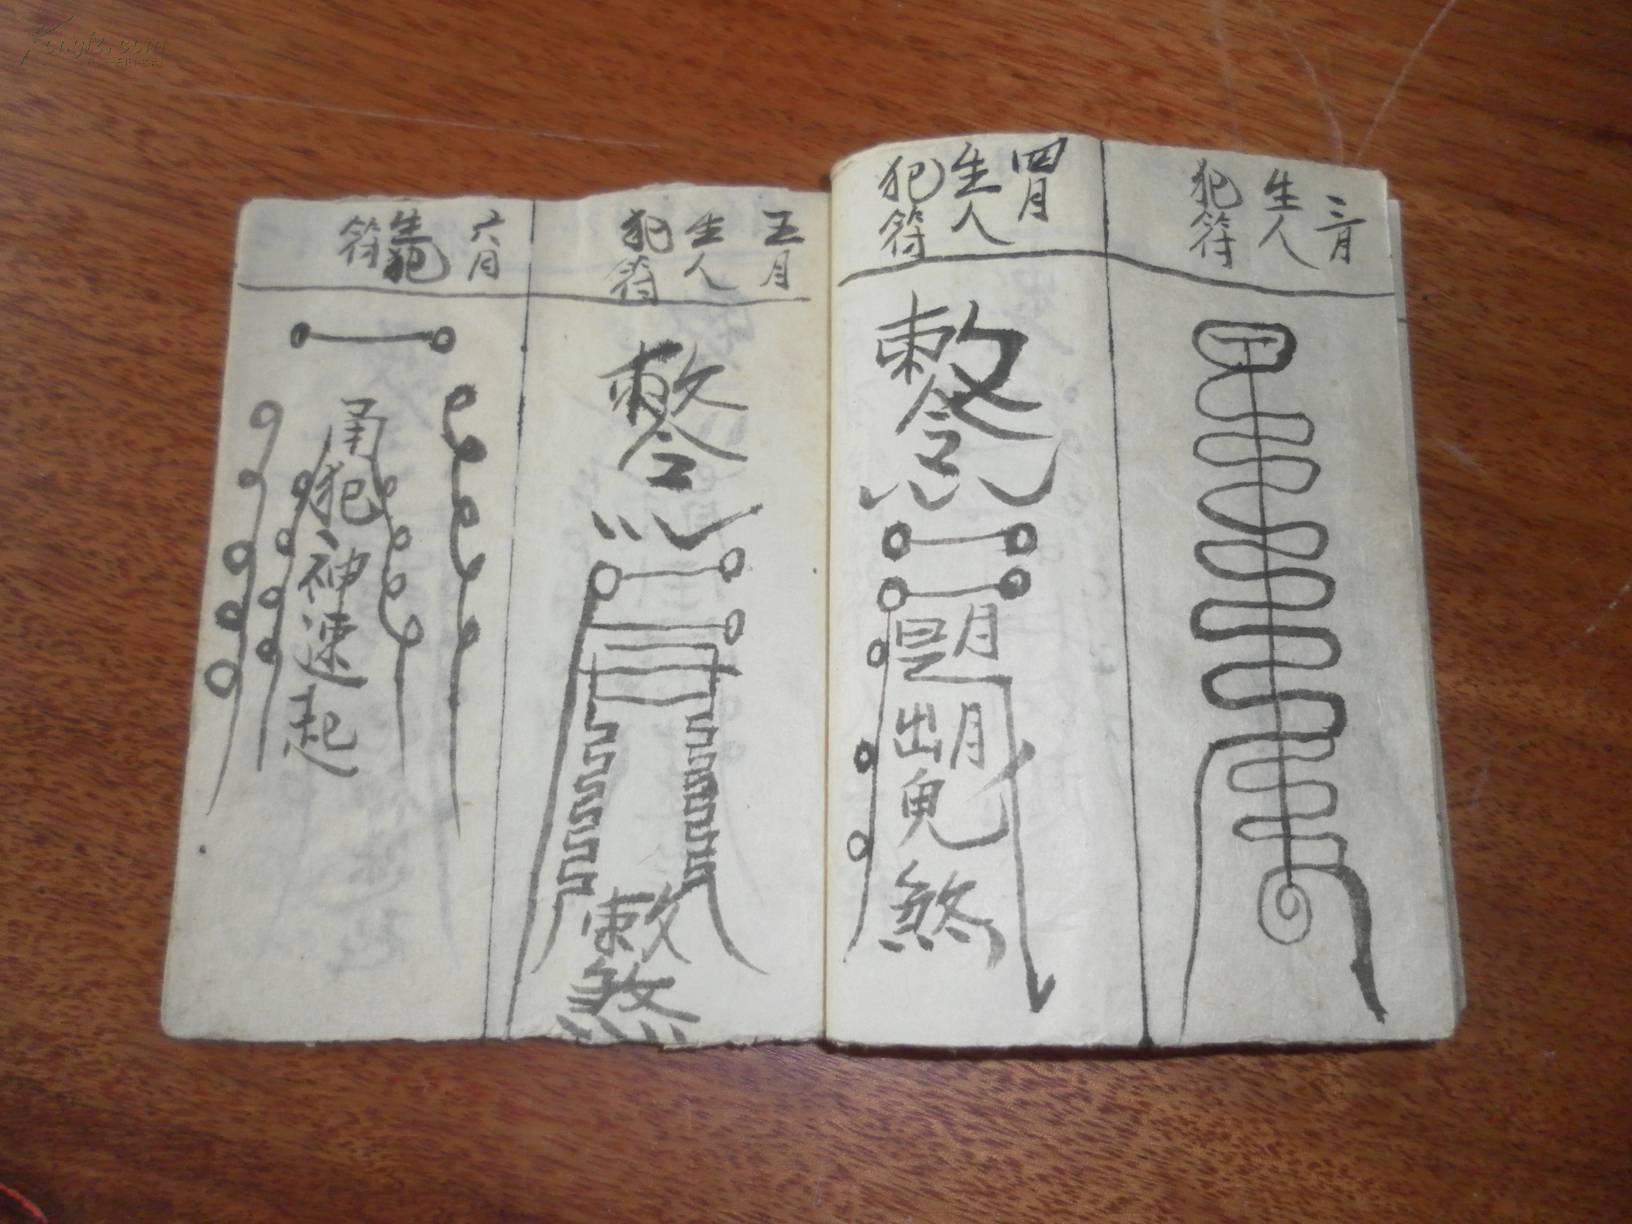 三月
生人
犯符
四月
生人
犯符
敕令
月
出月
煞
五月
生人
犯符
敕令
敕
煞
六月
生犯
符
犯神速起